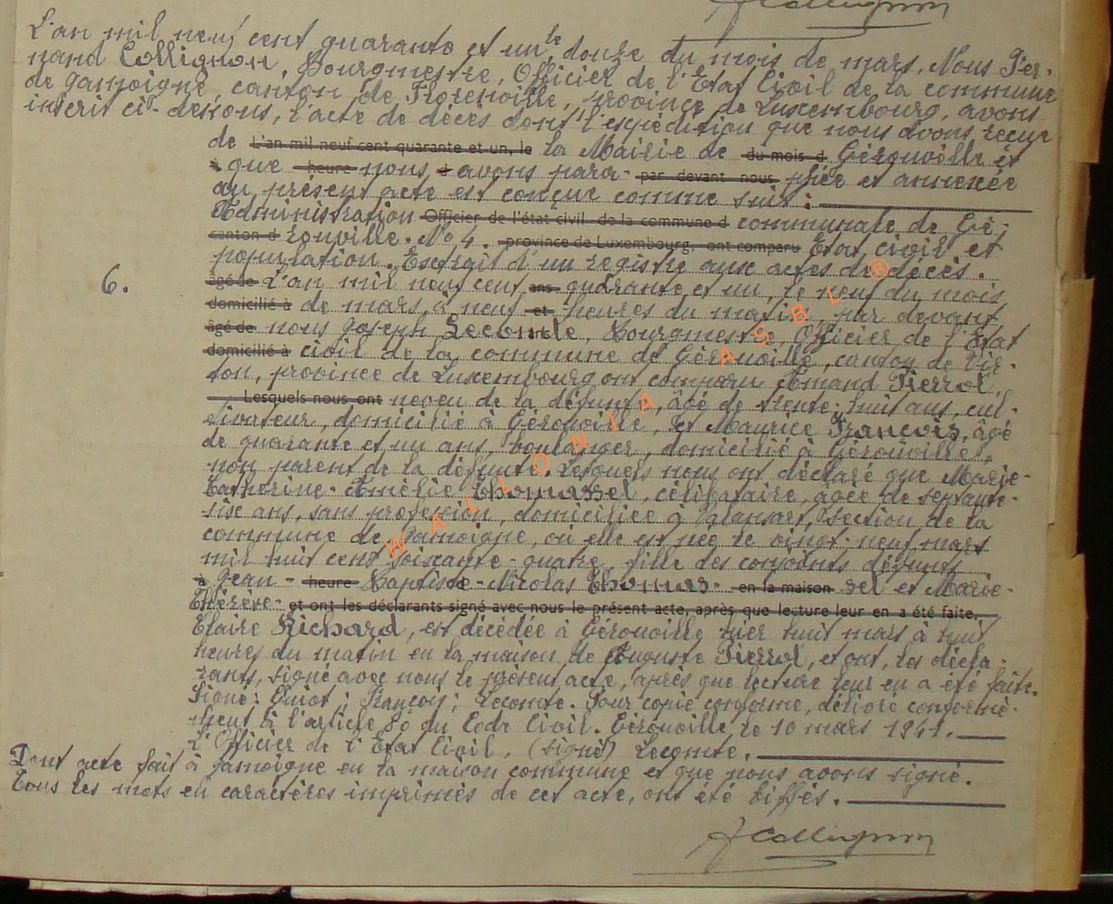 F Collignon
L'an mil neuf cent quarante et un le douze du mois de mars, Nous Fer-
nand Collignon, Bourgmestre, Officier de l'Etat Civil de la commune
de Jamoigne, canton de Florenville, province de Luxembourg, avons
inscrit ci-dessous, l'acte de décès dont l'expédition que nous avons reçue
de L'an mil neuf cent quarante et un, le la Mairie de du mois d Gérouville et
à que heure nous, d avons para- par devant nous phée et annexée
au présent acte est conçue comme suit :
Administration Officier de l'état civil de la commune d communale de Gé-
canton d rouville. No 4. province de Luxembourg, ont comparu Etat civil et
population. Extrait d'un registre aux actes de décès.
6. âgé de L'an mil neuf cent ans quarante et un, le neuf du mois
domicilié à de mars, à neuf et heures du matin, par devant
âgé de nous Joseph Lecomte, Bourgmestre, Officier de l'Etat
domicilié à civil de la commune de Gérouville, canton de Vir-
ton, province de Luxembourg ont comparu Amand Pierrot,
Lesquels nous ont neveu de la défunte, âgé de trente-huit ans, cul-
tivateur, domicilié à Gérouville, et Maurice François, âgé
de quarante et un ans, boulanger, domicilié à Gérouville,
non parent de la défunte. Lesquels nous ont déclaré que Marie-
Catherine-Amélie Thomassel, célibataire, âgée de septante-
six ans, sans profession, domiciliée à Valansart, section de la
commune de Jamoigne, où elle est née le vingt-neuf mars
mil huit cent soixante-quatre, fille des conjoints défunts
à Jean- heure Baptiste-Nicolas Thomas- en la maison sel et Marie-
Thérèse- et ont les déclarants signé avec nous le présent acte, après que lecture leur en a été faite,
Claire Richard, est décédée à Gérouville hier huit mars à huit
heures du matin en la maison de Auguste Pierrot, et ont, les décla-
rants, signé avec nous le présent acte, après que lecture leur en a été faite.
Signé: Guiot; François; Lecomte. Pour copie conforme, délivré conformé-
ment à l'article 80 du Code Civil. Gérouville, le 10 mars 1941.
L'Officier de l'Etat Civil, (signé) Lecomte.
Dont acte fait à Jamoigne en la maison commune et que nous avons signé.
Tous les mots en caractères imprimés de cet acte, ont été biffés.
F Collignon
WALLONIA ASBL ®